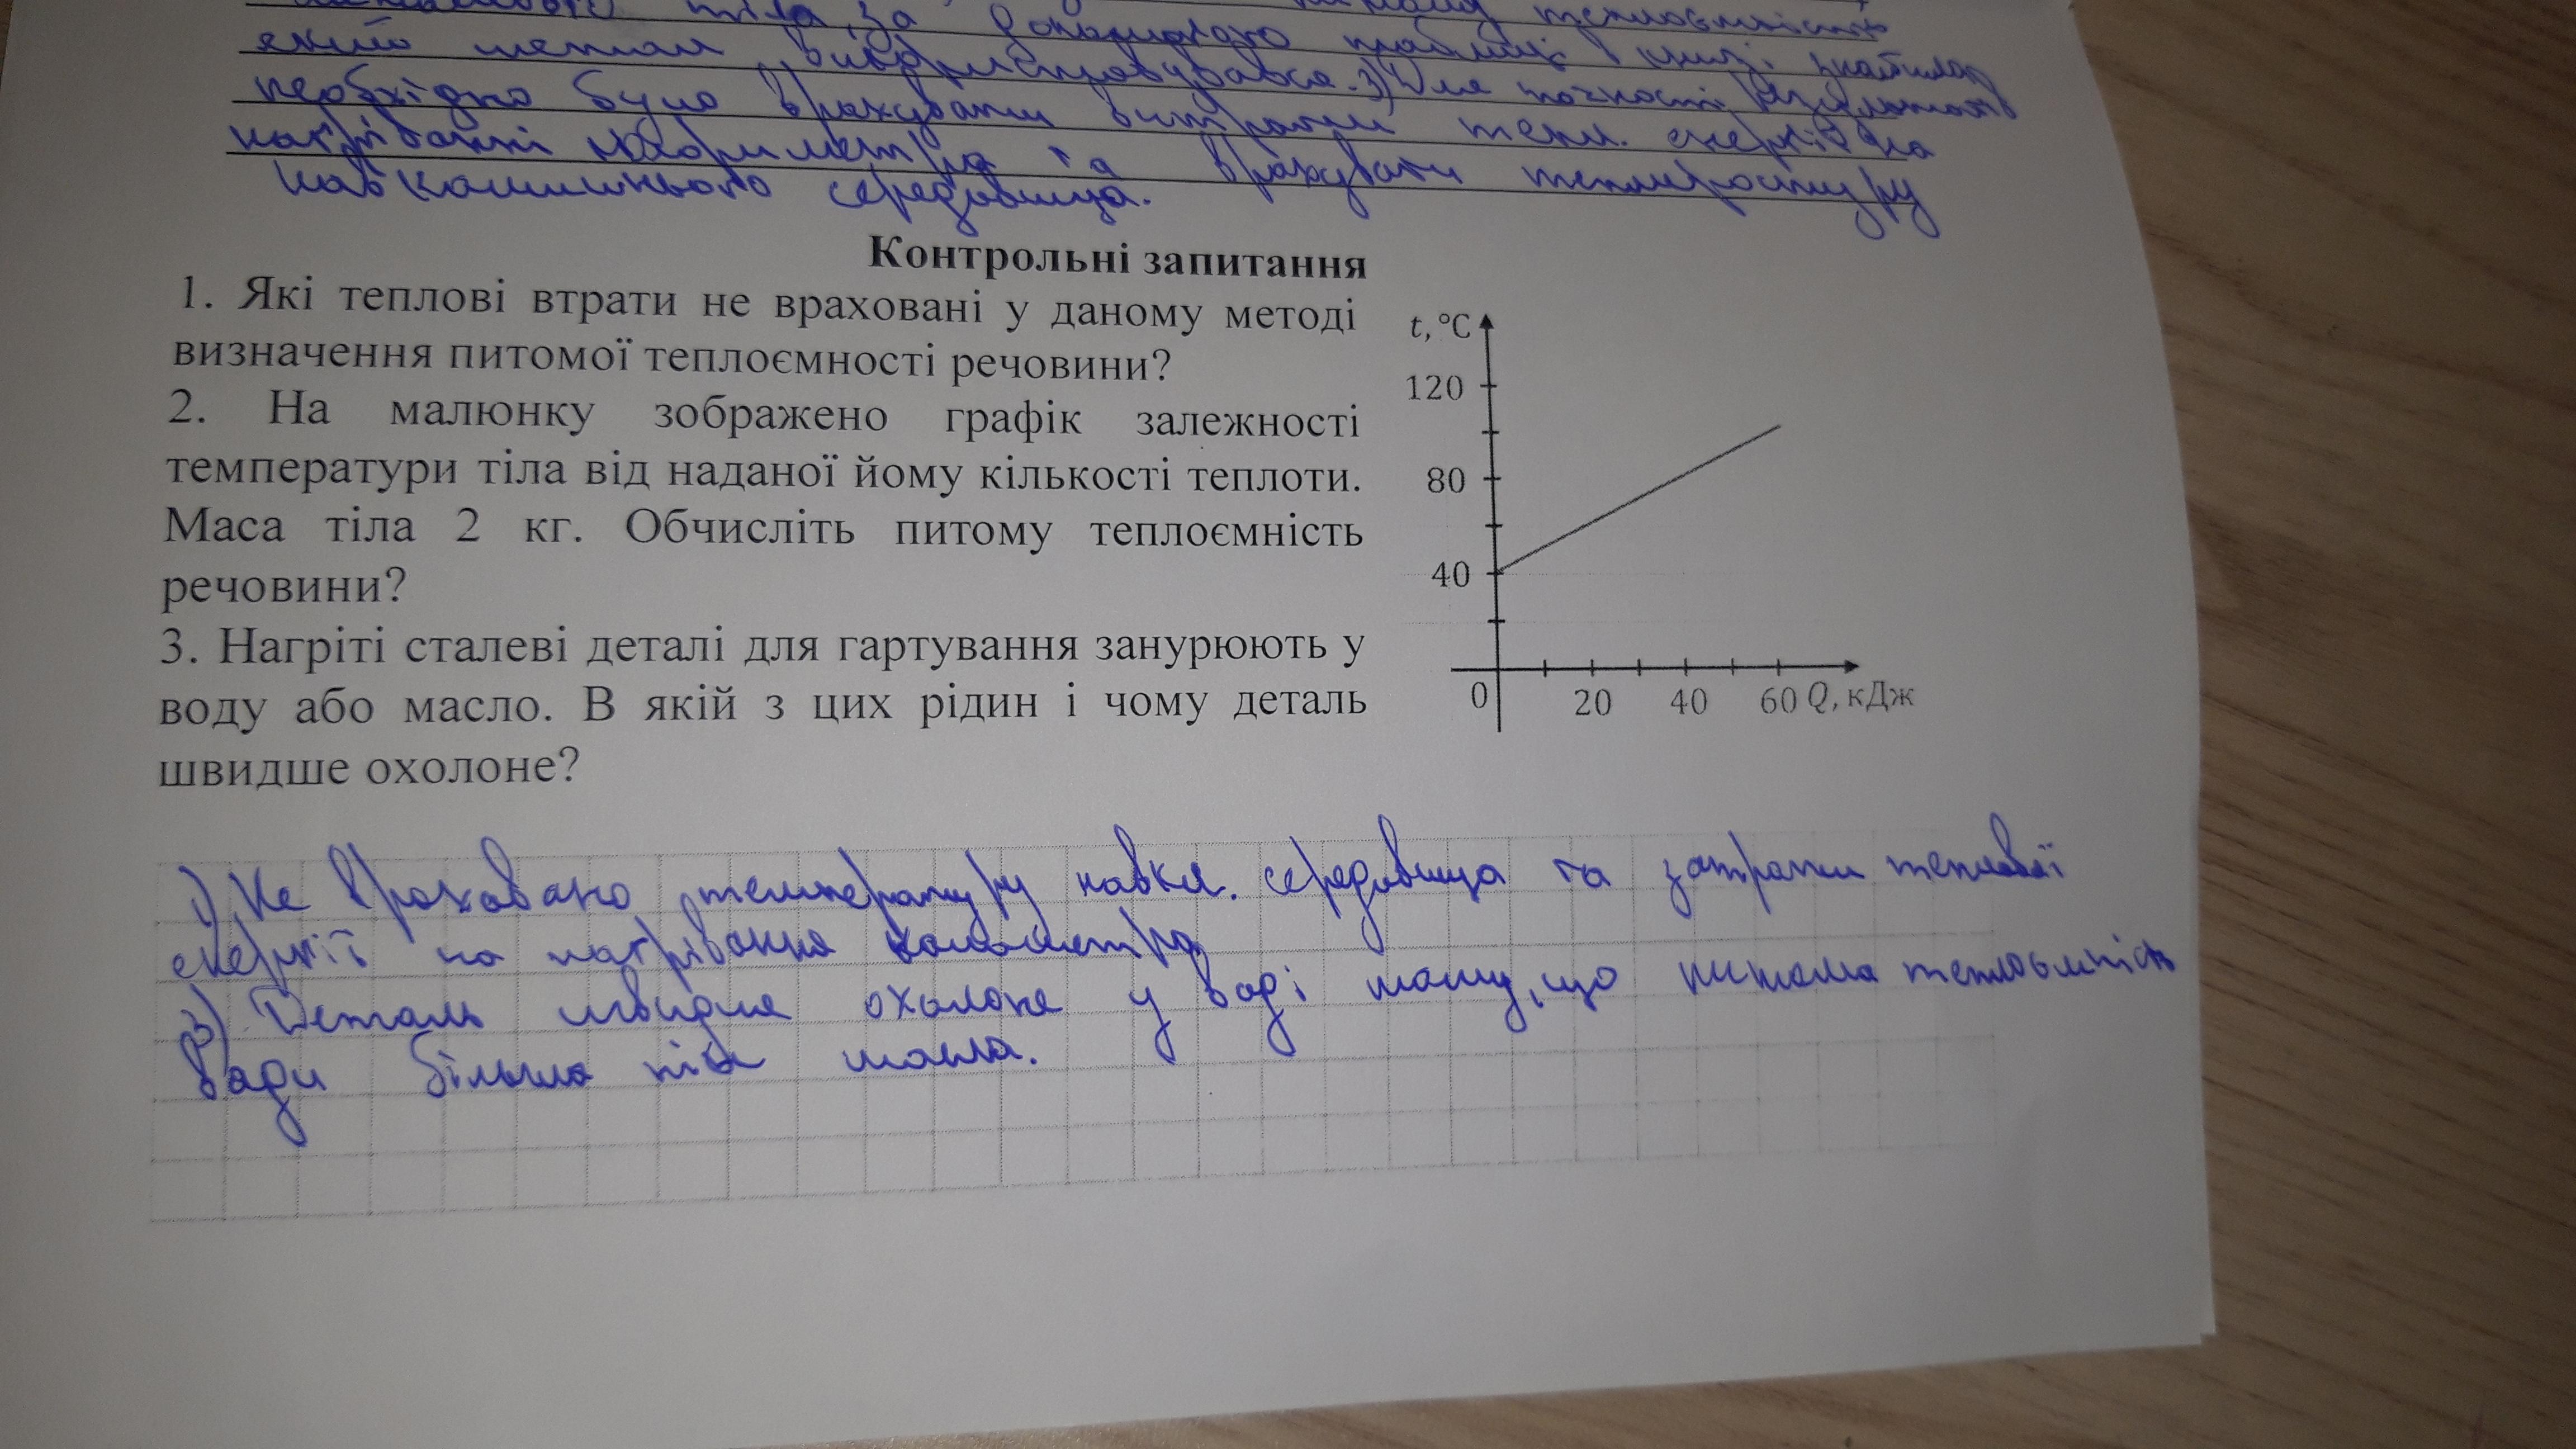 тіла за допомогою теплоємність
який метал використовувався. 3) Для точності результатів
необхідно було врахувати витрати тепл. енергії на
нагріванні калориметра та врахувати температуру
навколишнього середовища.
Контрольні запитання
1. Які теплові втрати не враховані у даному методі
визначення питомої теплоємності речовини?
2. На малюнку зображено графік залежності
температури тіла від наданої йому кількості теплоти.
Маса тіла 2 кг. Обчисліть питому теплоємність
речовини?
3. Нагріті сталеві деталі для гартування занурюють у
воду або масло. В якій з цих рідин і чому деталь
швидше охолоне?
t, °C
120
80
40
0 20 40 60 Q, кДж
1) Не враховано температуру навкл. середовища та затрати теплової
енергії на нагрівання калометра
3) Деталь швидше охолоне у воді тому, що питома теплоємність
води більша ніж масла.